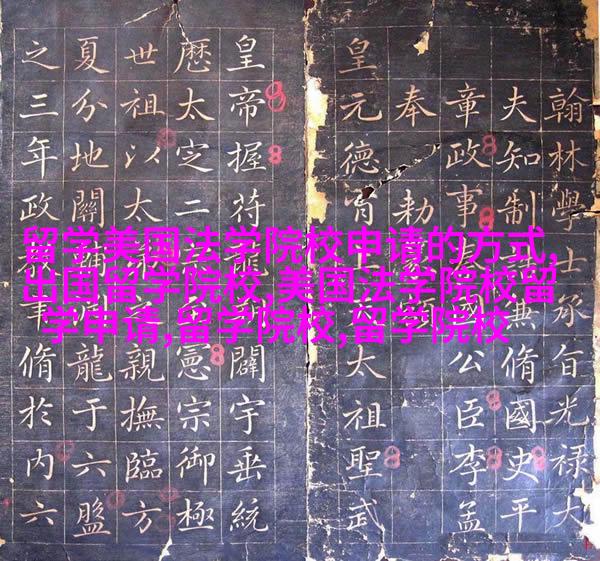 留学美国法学院校申请的方式,
出国留学院校,美国法学院校留
学申请,留学院校,留学院校
翰林學士承旨光祿大
夫知制兼脩國史平
章政事國公臣李孟
奉勅
皇元德太祖聖武
皇帝握符龍闢宇垂統
厯太㝎二憲宗御極
世祖以太親撫臨方
夏分地關龍于六盤
之三年政事脩於内六